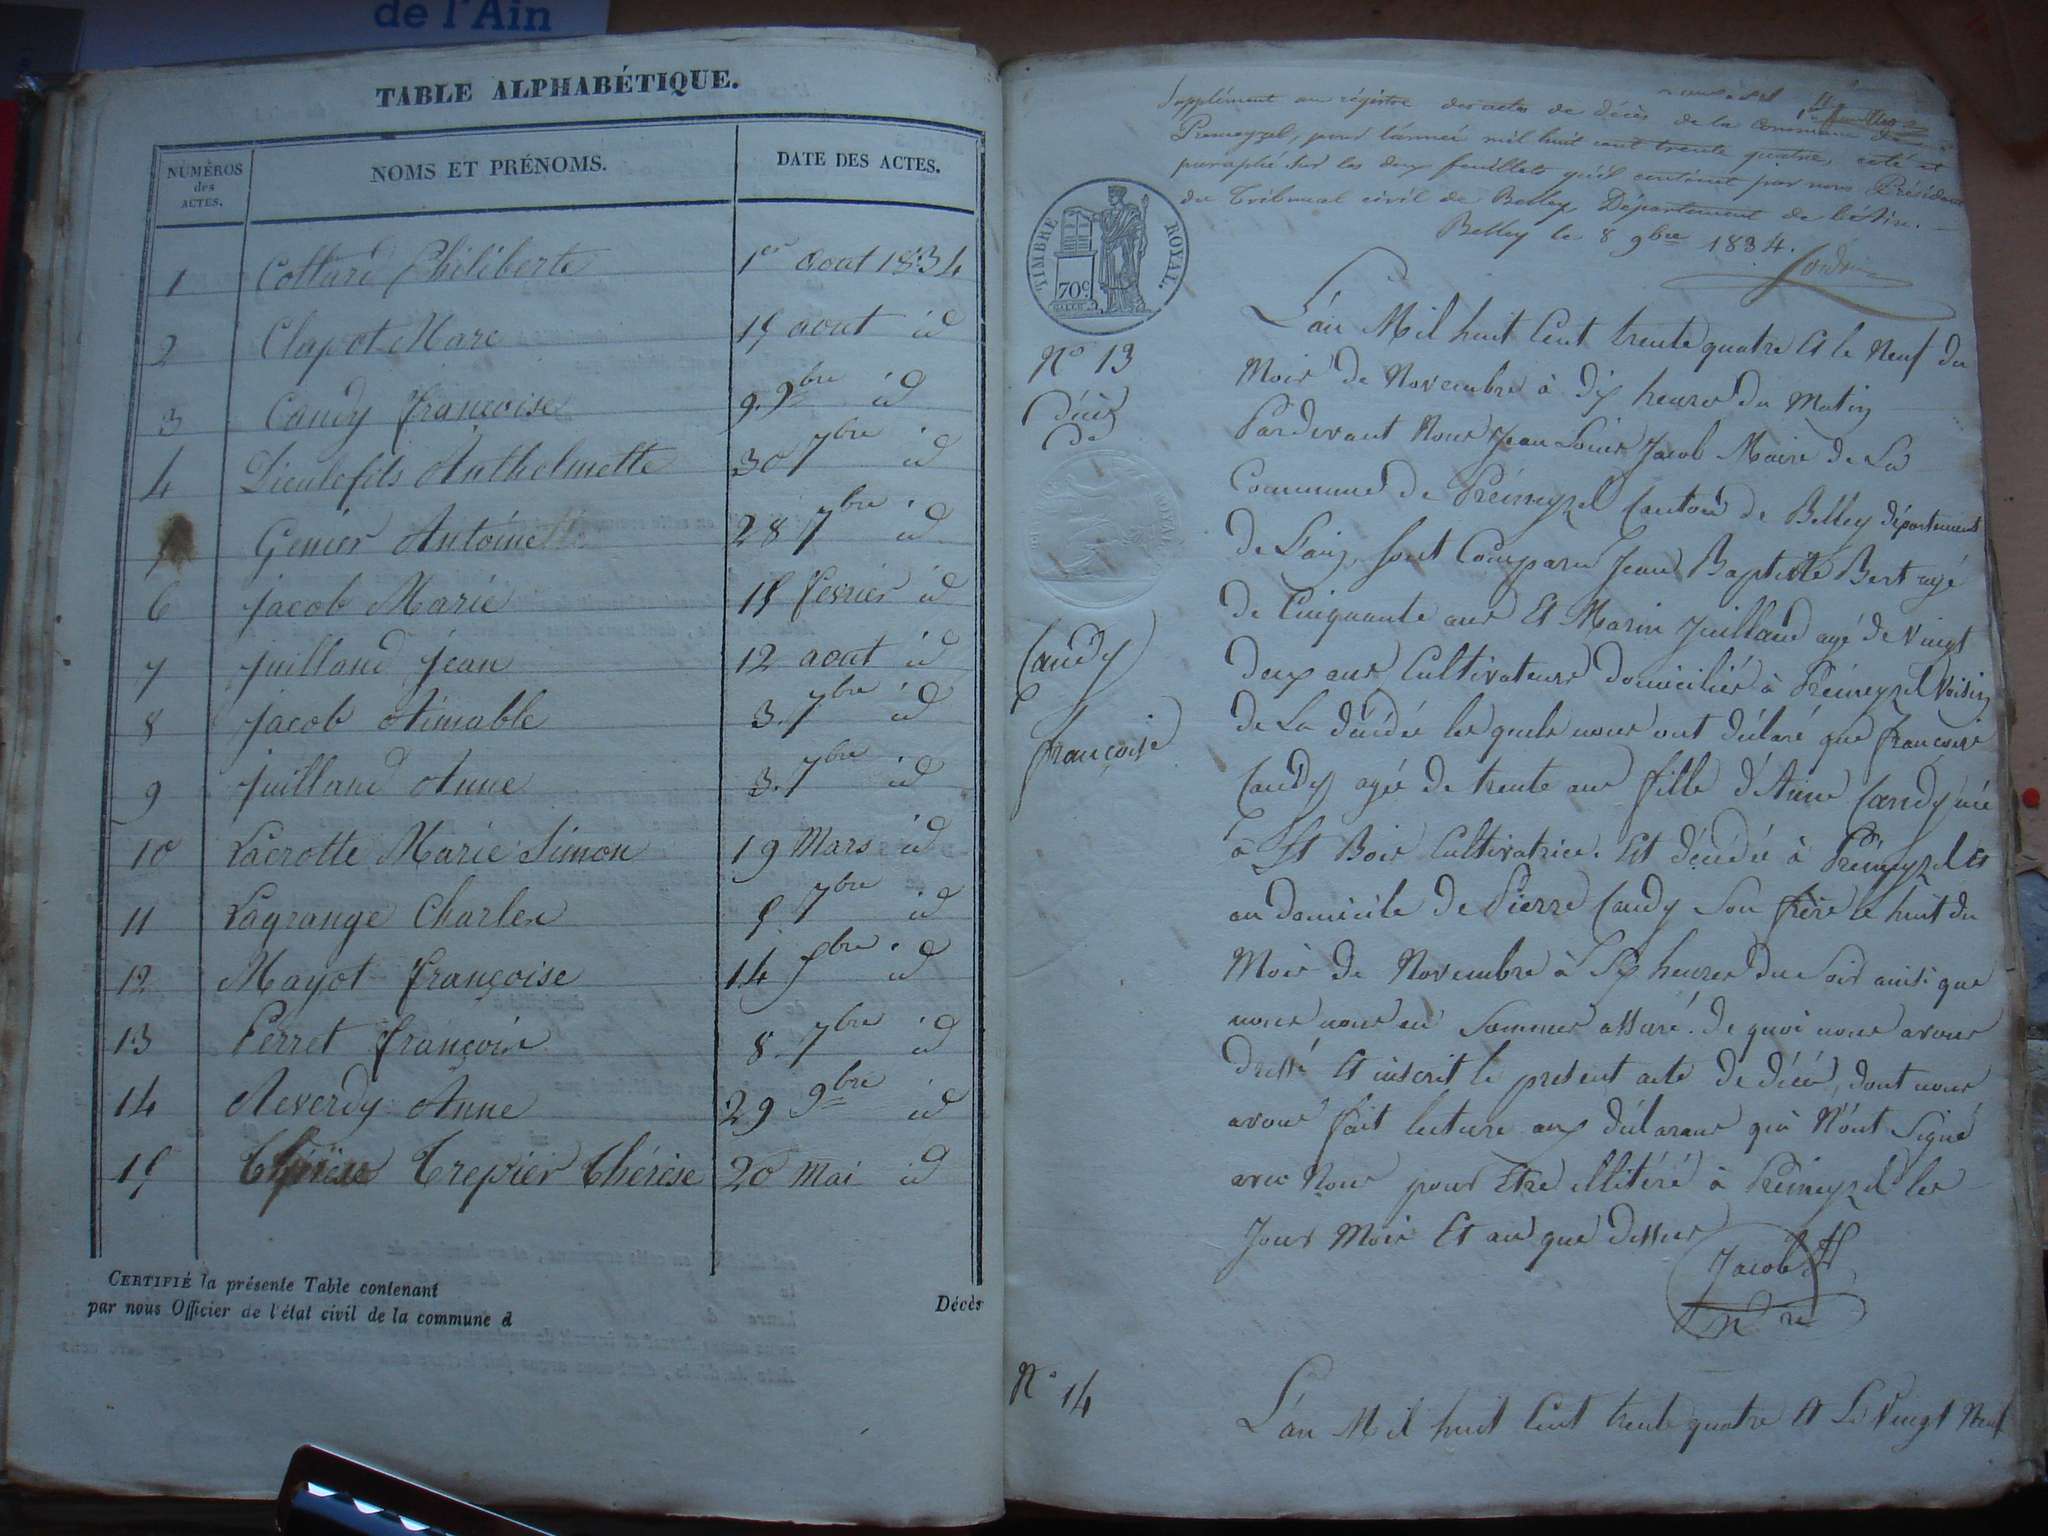 de l'Ain
TABLE ALPHABÉTIQUE.
NUMÉROS des ACTES. NOMS ET PRÉNOMS. DATE DES ACTES.
1 Cottard Philiberte 1er aout 1834
2 Clapot Marc 15 aout id
3 Candy françoise 9. 9bre id
4 Dieulefils Anthelmette 30 7bre id
Genier Antoinette 28 7bre id
6 Jacob Marie 15 fevrier id
7 Juilland Jean 12 aout id
8 Jacob Aimable 3. 7bre id
9 Juilland Anne 3. 7bre id
10 Lacrotte Marie Simon 19 Mars id
11 Lagrange Charles 5. 7bre id
12 Mayot françoise 14 8bre id
13 Perret françois 8. 7bre id
14 Reverdy Anne 29 9bre id
15 Trepier Thérèse 20 Mai id
CERTIFIÉ la présente Table contenant Décès
par nous Officier de l'état civil de la commune d
Supplément au régistre des actes de décès de la commune de
Premeyzel, pour l'année mil huit cent trente quatre, coté et
paraphé sur les deux feuillets qu'il contient par nous Président
du Tribunal civil de Belley Département de l'Ain.
Belley le 8 9bre 1834.
TIMBRE ROYAL.
70c
No 13
Décès
de
Candy
françoise
L'an Mil huit Cent trente quatre Et le Neuf du
Mois de Novembre à dix heures du Matin
Pardevant Nous Jean Louis Jacob Maire de La
Commune de Prémeyzel Canton de Belley département
de L'ain, sont Comparu Jean Baptiste Bert agé
de Cinquante ans Et Marin Juilland agé de Vingt
deux ans Cultivateurs domiciliés à Prémeyzel Voisin
de La décédée les quels nous ont déclaré que françoise
Candy agée de trente ans fille d'Anne Candy née
à St Bois Cultivatrice. Est décédée à Prémeyzel Et
au domicile de Pierre Candy Son frère le huit du
Mois de Novembre à Six heures du Soir ainsi que
nous nous en Sommes assuré. de quoi nous avons
dressé Et inscrit le present acte de décès, dont nous
avons fait lecture aux déclarans qui N'ont Signé
avec Nous pour Etre illitéré à Prémeyzel les
Jour Mois Et an que dessus
Jacob
No 14
L'an Mil huit Cent trente quatre Et Le Vingt Neuf